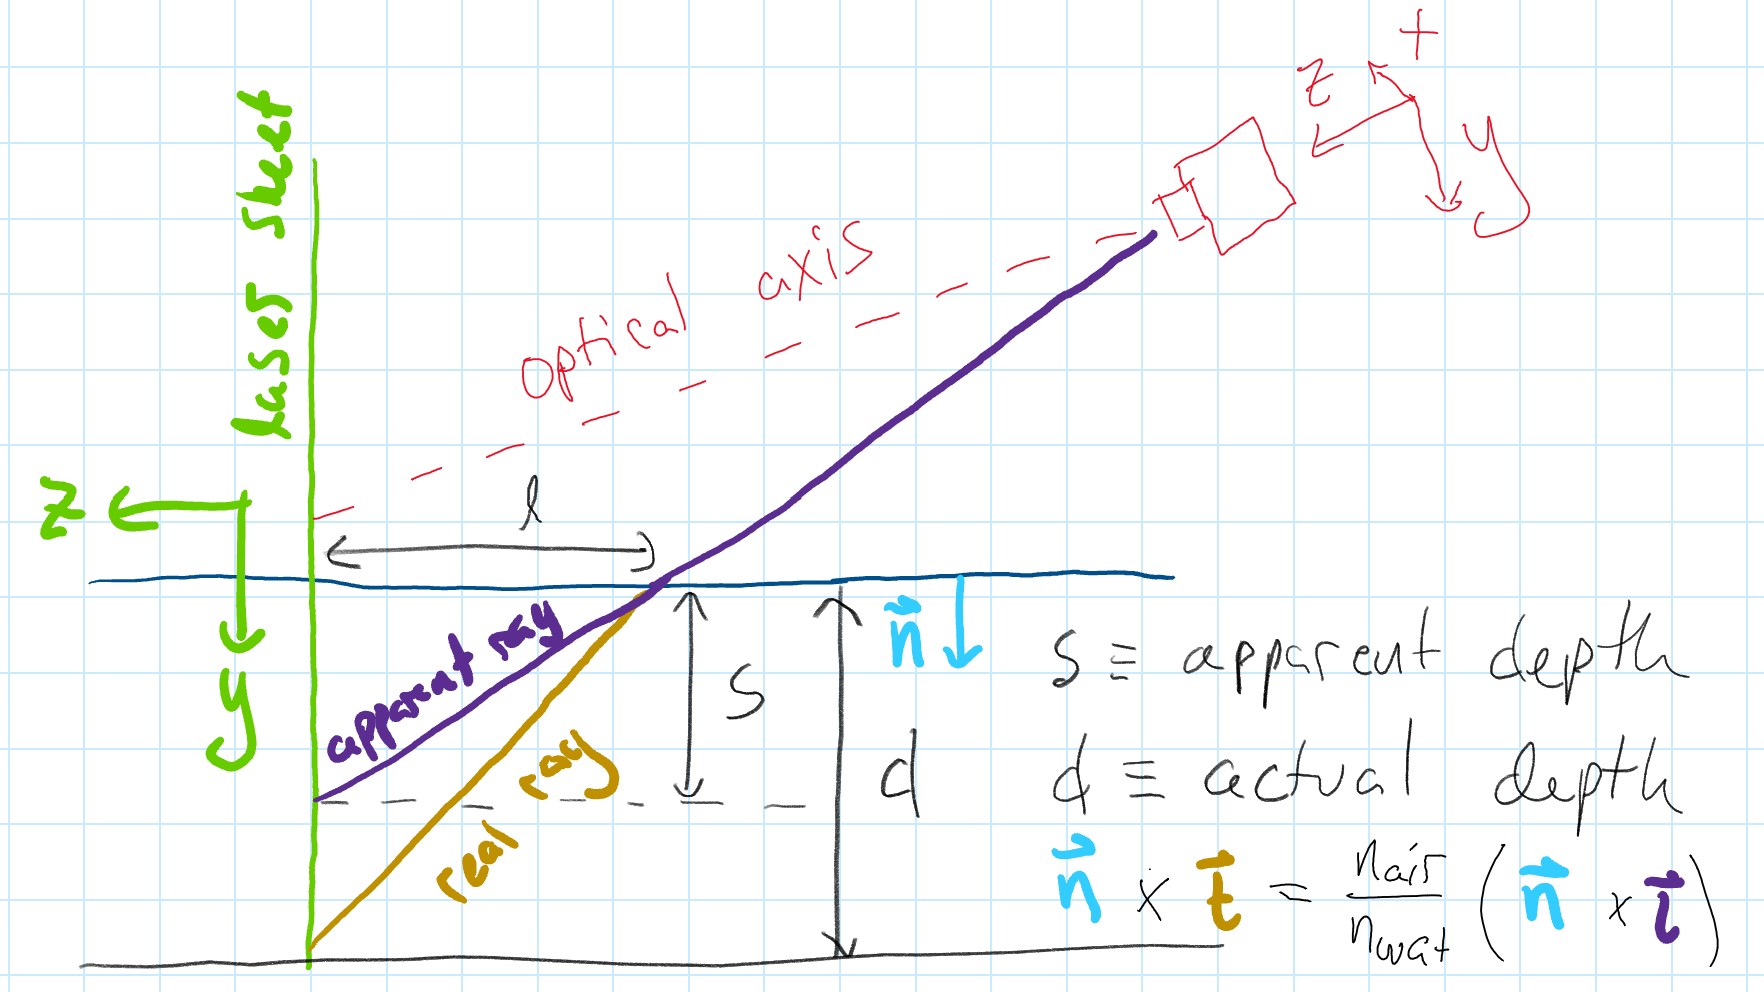 +
z
y
laser sheet
optical axis
l
z
y
apparent ray
real ray
s
d
n⃗
s ≡ apparent depth
d ≡ actual depth
n⃗ × t⃗ = n_air/n_wat (n⃗ × i⃗)